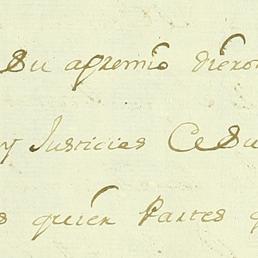 Su apremio dieron
y Justicias Ce Su
quien Partes